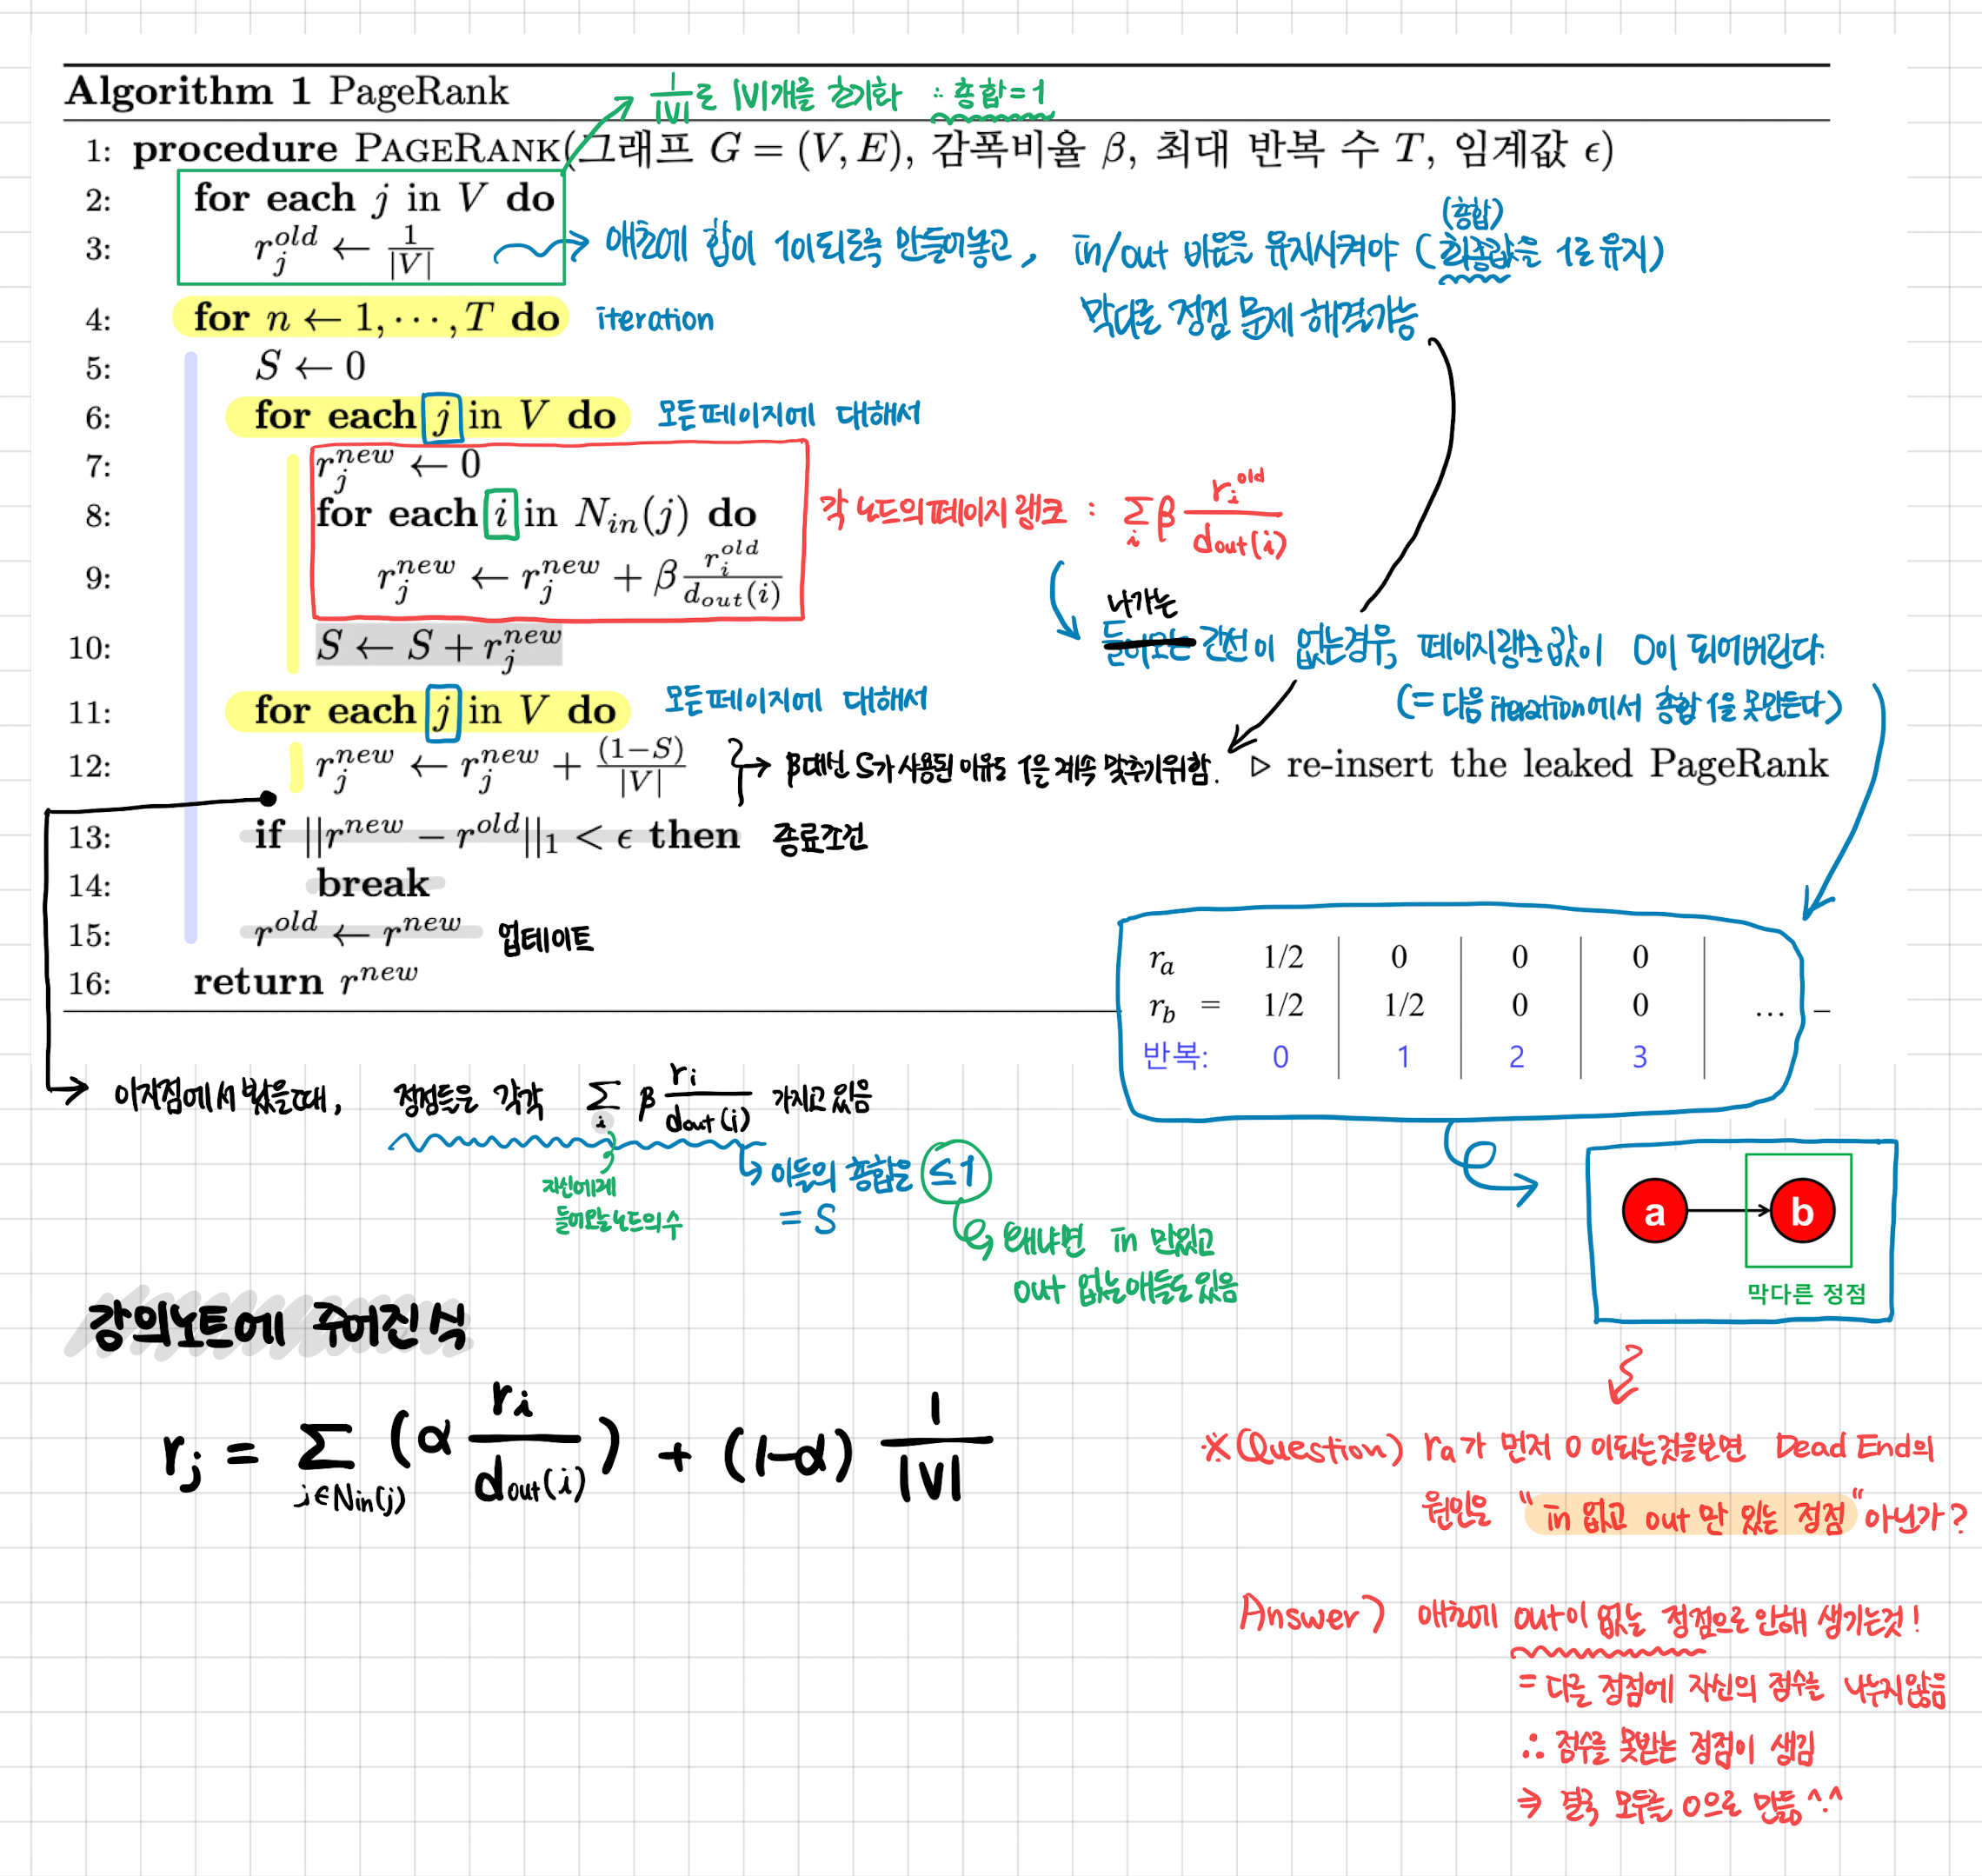 Algorithm 1 PageRank
1/|V|로 |V|개를 초기화 ∴ 총합=1
1: procedure PAGERANK(그래프 G = (V, E), 감폭비율 β, 최대 반복 수 T, 임계값 ϵ)
2: for each j in V do
3: r_j^{old} ← 1/|V|
애초에 합이 1이되도록 만들어놓고, in/out 비율을 유지시켜야 (최종값을 1로 유지)
(총합)
막다른 정점 문제 해결가능
4: for n ← 1, ⋯ , T do iteration
5: S ← 0
6: for each j in V do 모든페이지에 대해서
7: r_j^{new} ← 0
8: for each i in N_{in}(j) do
각 노드의 페이지 랭크 : Σ_i β r_i^{old}/d_{out}(i)
9: r_j^{new} ← r_j^{new} + β r_i^{old}/d_{out}(i)
나가는
들어오는 간선이 없는경우, 페이지랭크 값이 0이 되어버린다.
10: S ← S + r_j^{new}
(= 다음 iteration에서 총합 1을 못만든다)
11: for each j in V do 모든페이지에 대해서
12: r_j^{new} ← r_j^{new} + (1−S)/|V|
β대신 S가 사용된 이유도 1을 계속 맞추기위함. ▷ re-insert the leaked PageRank
13: if ||r^{new} − r^{old}||_1 < ϵ then 종료조건
14: break
15: r^{old} ← r^{new} 업데이트
16: return r^{new}
r_a 1/2 0 0 0
r_b = 1/2 1/2 0 0 ...
반복: 0 1 2 3
이지점에서 봤을때, 정점들은 각각 Σ_i β r_i/d_{out}(i) 가지고 있음
자신에게
들어오는 노드의 수
이들의 총합은 ≤1
= S
왜냐면 in 만있고
out 없는애들도 있음
a b
막다른 정점
강의노트에 주어진 식
r_j = Σ_{j∈N_{in}(j)} (α r_i/d_{out}(i)) + (1-α) 1/|V|
※(Question) r_a가 먼저 0 이되는것을보면 Dead End의
원인은 "in 없고 out 만 있는 정점" 아닌가?
Answer) 애초에 out이 없는 정점으로 인해 생기는것!
= 다른 정점에 자신의 점수를 나누지않음
∴ 점수를 못받는 정점이 생김
⇒ 결국 모두를 0으로 만듦^.^